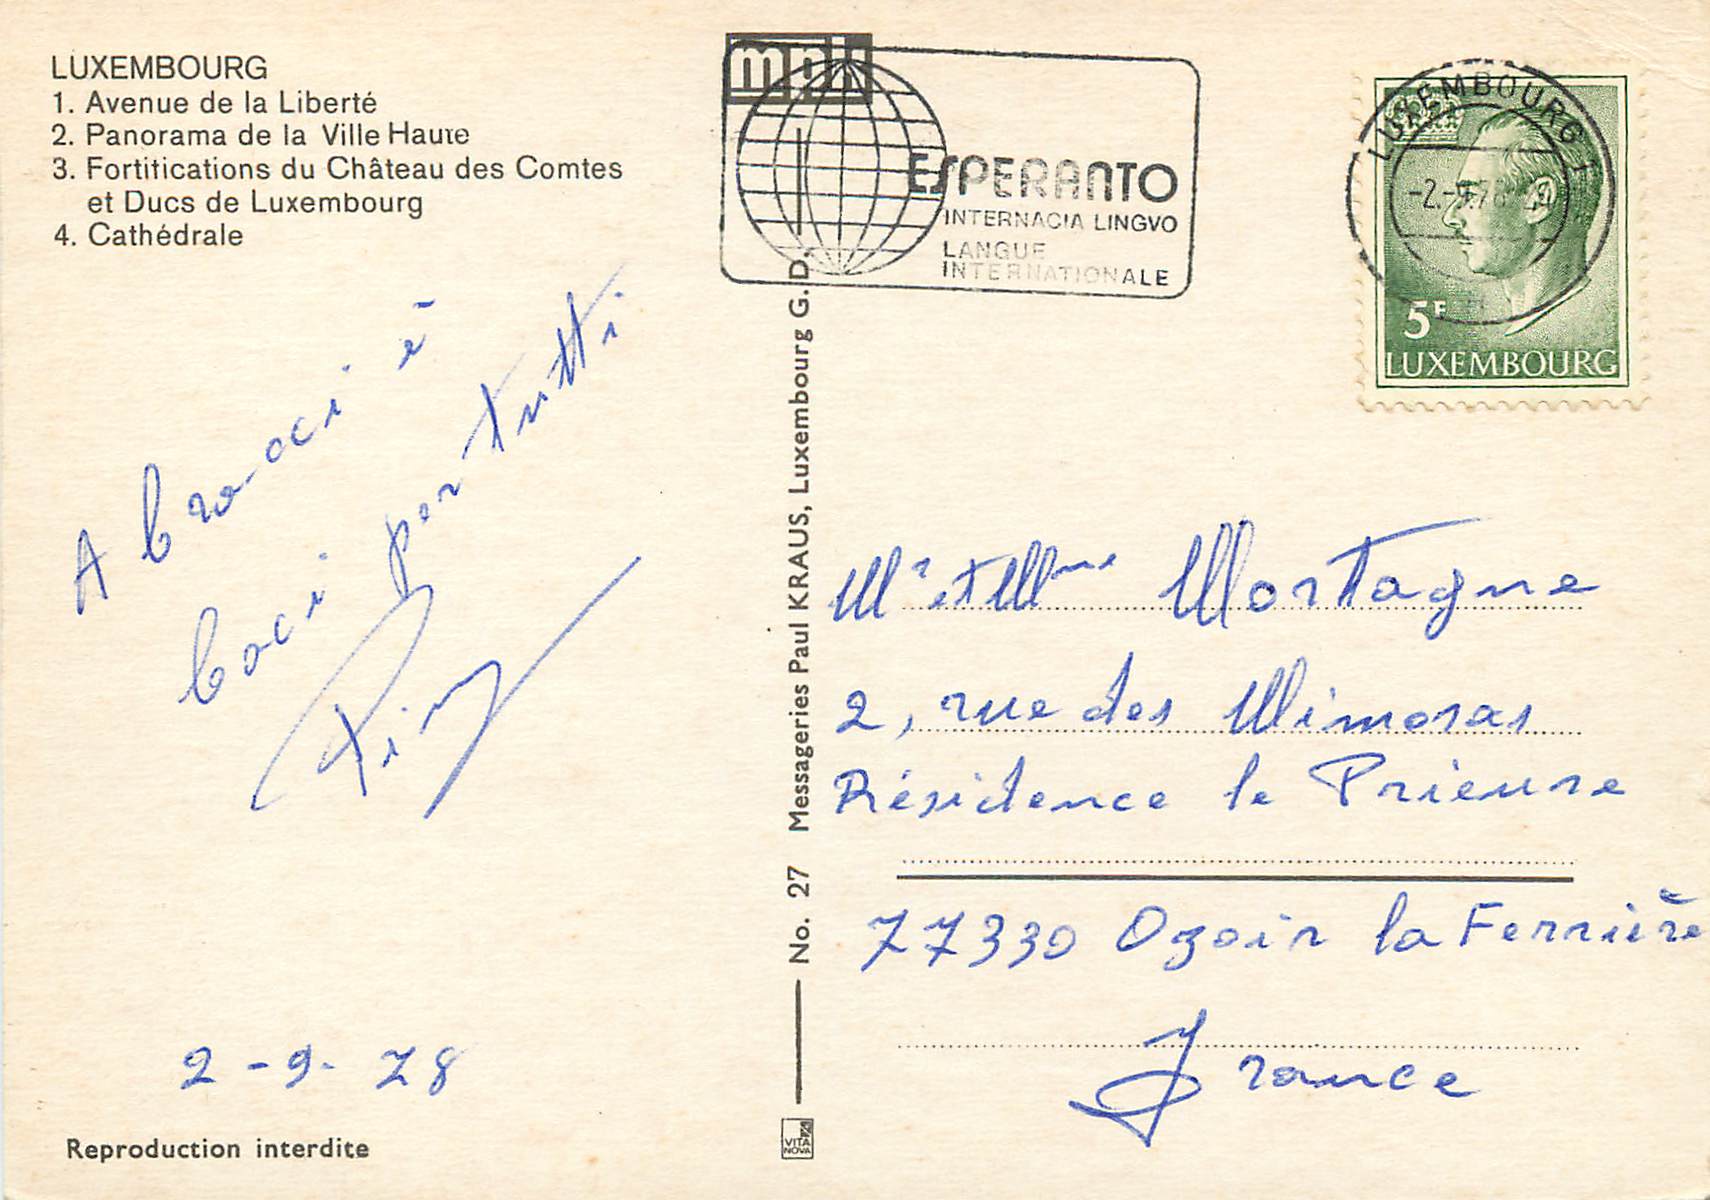 LUXEMBOURG
1. Avenue de la Liberté
2. Panorama de la Ville Haute
3. Fortifications du Château des Comtes
et Ducs de Luxembourg
4. Cathédrale
A braci è
baci per tutti
2-9-78
Reproduction interdite
No. 27 Messageries Paul KRAUS, Luxembourg G.D.
VITA
NOVA
ESPERANTO
INTERNACIA LINGVO
LANGUE
INTERNATIONALE
LUXEMBOURG 1
-2.-9.78
5F
LUXEMBOURG
Mr et Mme Mortagne
2, rue des Mimosas
Résidence le Prieure
77330 Ozoir la Ferrière
France